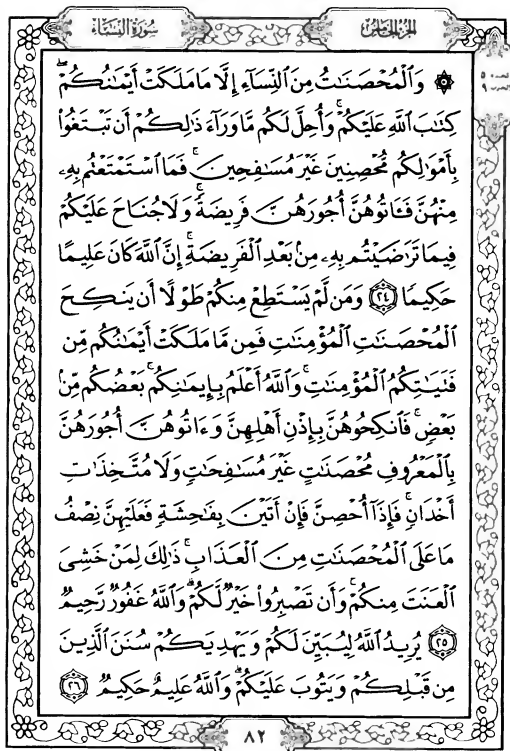 الجزء الخامس
سورة النساء
۞ وَالْمُحْصَنَاتُ مِنَ النِّسَاءِ إِلَّا مَا مَلَكَتْ أَيْمَانُكُمْ ۖ
كِتَابَ اللَّهِ عَلَيْكُمْ ۚ وَأُحِلَّ لَكُم مَّا وَرَاءَ ذَٰلِكُمْ أَن تَبْتَغُوا
بِأَمْوَالِكُم مُّحْصِنِينَ غَيْرَ مُسَافِحِينَ ۚ فَمَا اسْتَمْتَعْتُم بِهِ
مِنْهُنَّ فَآتُوهُنَّ أُجُورَهُنَّ فَرِيضَةً ۚ وَلَا جُنَاحَ عَلَيْكُمْ
فِيمَا تَرَاضَيْتُم بِهِ مِن بَعْدِ الْفَرِيضَةِ ۚ إِنَّ اللَّهَ كَانَ عَلِيمًا
حَكِيمًا ٢٤ وَمَن لَّمْ يَسْتَطِعْ مِنكُمْ طَوْلًا أَن يَنكِحَ
الْمُحْصَنَاتِ الْمُؤْمِنَاتِ فَمِن مَّا مَلَكَتْ أَيْمَانُكُم مِّن
فَتَيَاتِكُمُ الْمُؤْمِنَاتِ ۚ وَاللَّهُ أَعْلَمُ بِإِيمَانِكُم ۚ بَعْضُكُم مِّن
بَعْضٍ ۚ فَانكِحُوهُنَّ بِإِذْنِ أَهْلِهِنَّ وَءَاتُوهُنَّ أُجُورَهُنَّ
بِالْمَعْرُوفِ مُحْصَنَاتٍ غَيْرَ مُسَافِحَاتٍ وَلَا مُتَّخِذَاتِ
أَخْدَانٍ ۚ فَإِذَا أُحْصِنَّ فَإِنْ أَتَيْنَ بِفَاحِشَةٍ فَعَلَيْهِنَّ نِصْفُ
مَا عَلَى الْمُحْصَنَاتِ مِنَ الْعَذَابِ ۚ ذَٰلِكَ لِمَنْ خَشِيَ
الْعَنَتَ مِنكُمْ ۚ وَأَن تَصْبِرُوا خَيْرٌ لَّكُمْ ۗ وَاللَّهُ غَفُورٌ رَّحِيمٌ
٢٥ يُرِيدُ اللَّهُ لِيُبَيِّنَ لَكُمْ وَيَهْدِيَكُمْ سُنَنَ الَّذِينَ
مِن قَبْلِكُمْ وَيَتُوبَ عَلَيْكُمْ ۗ وَاللَّهُ عَلِيمٌ حَكِيمٌ ٢٦
٨٢